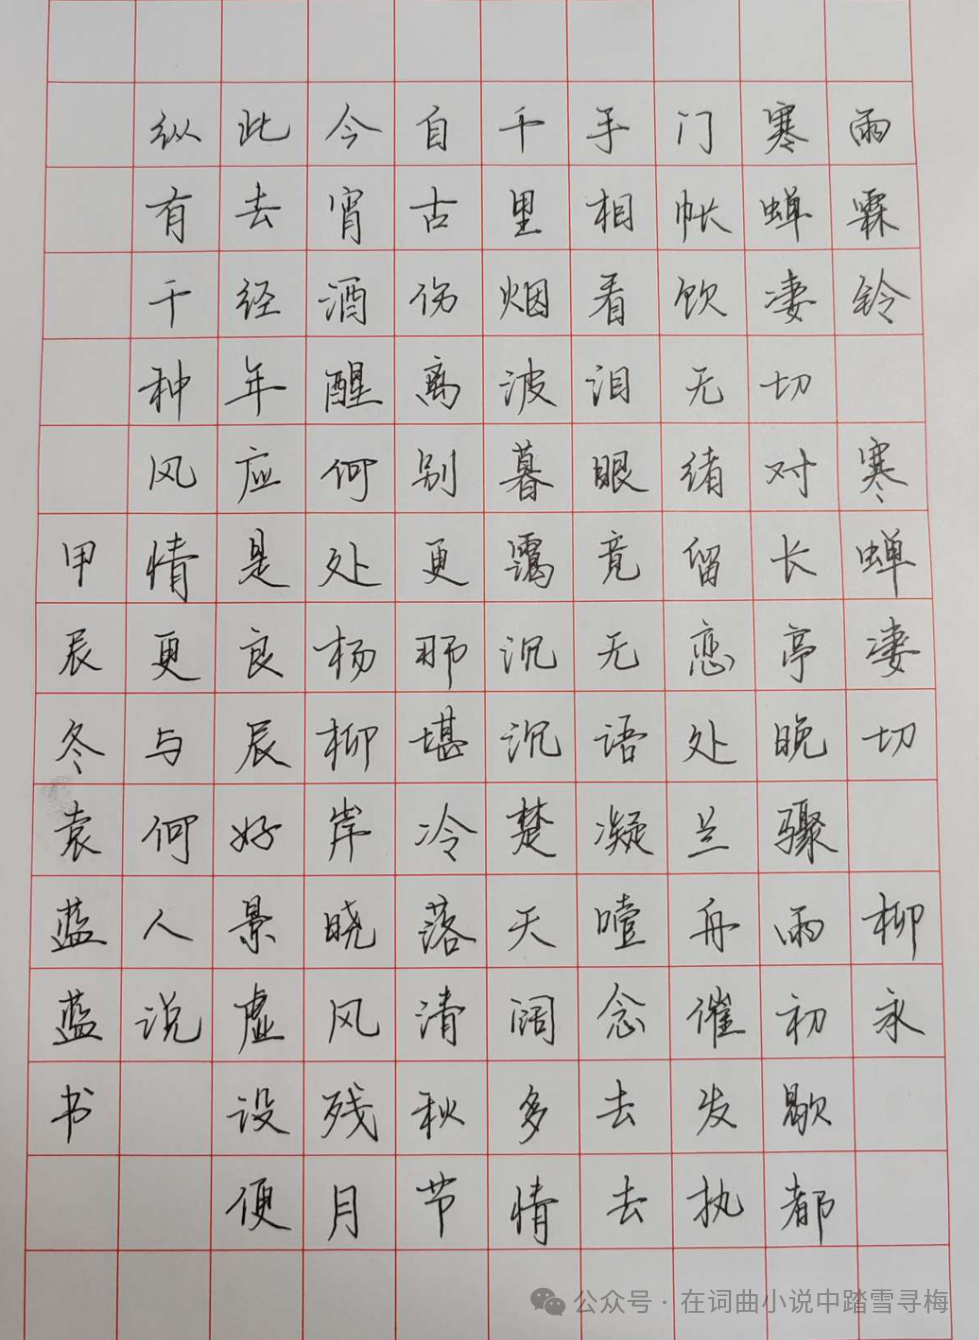 雨霖铃 寒蝉凄切 柳永
寒蝉凄切对长亭晚骤雨初歇都
门帐饮无绪留恋处兰舟催发执
手相看泪眼竟无语凝噎念去去
千里烟波暮霭沉沉楚天阔多情
自古伤离别更那堪冷落清秋节
今宵酒醒何处杨柳岸晓风残月
此去经年应是良辰好景虚设便
纵有千种风情更与何人说
甲辰冬袁蓝蓝书
公众号·在词曲小说中踏雪寻梅